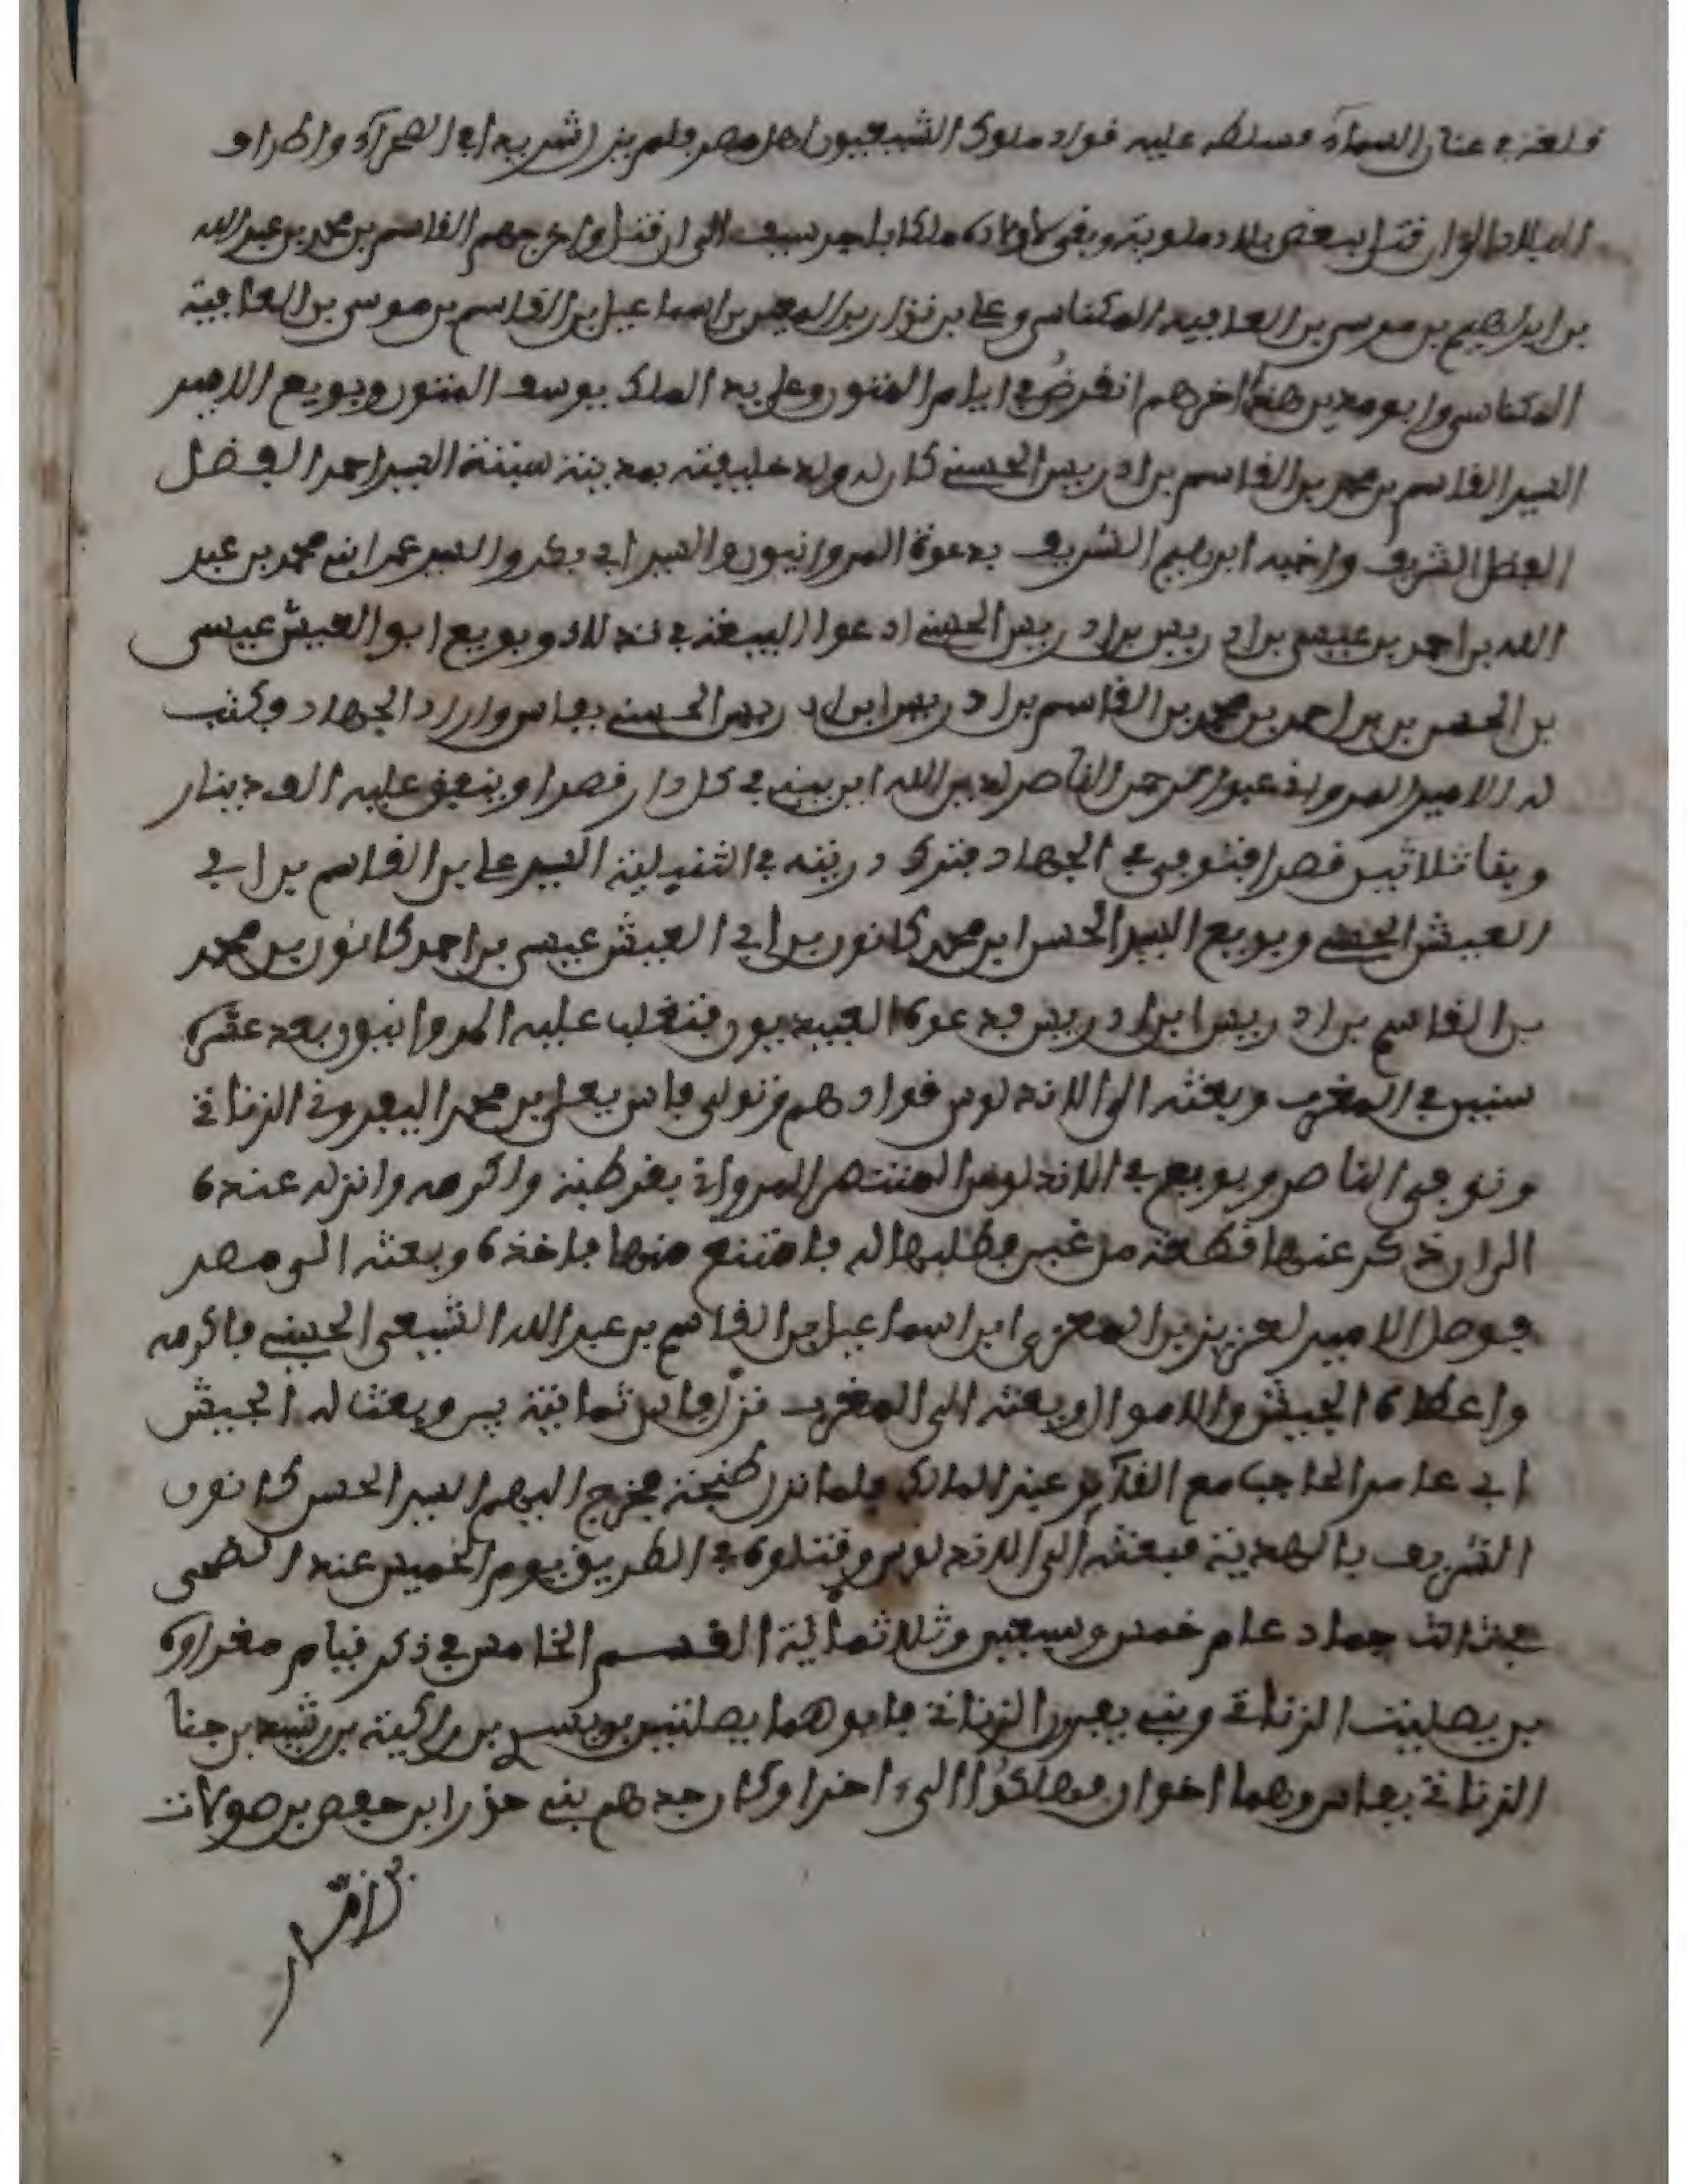 فلعنه في عنان السماء وسلط عليه قواد ملوك الشيعيون اهل مصر فلم يزل شريدا في الصحراء واطراف
البلاد الى ان قتل ببعض بلاد ملوية وبقى لاولاده ملكا الى ان قتل واخرجهم القاسم بن محمد بن عبد الله
بن ابراهيم بن موسى بن ابي العافية المكناسي وعلي بن نزار بن المعز بن اسماعيل بن القاسم بن موسى بن العافية
المكناسي اخرهم انقرض في ايام وعلى يد الملك يوسف وبويع الامير
السيد القاسم بن محمد بن القاسم بن ادريس الحسني كان له ولد خليفته بمدينة سبتة السيد احمد الفضل
الفضل الشريف واخيه ابرهيم الشريف بدعوة المروانيون والسيد ابي بكر والسيد عمر ابني محمد بن عبد
الله بن احمد بن عيسى بن ادريس بن ادريس الحسني ادعوا البيعة في وبويع ابو العيش عيسى
بن الحسن بن بن احمد بن محمد بن القاسم بن ادريس ابن ادريس الحسني بفاس واراد الجهاد وكتب
له الامير المرواني عبد الرحمن الناصر لدين الله ان يبني في كل دار قصرا وينفق عليه الف دينار
وبنا ثلاثين قصرا فتوفي في الجهاد فترك السيد علي بن القاسم بن ابي
العيش الحسني وبويع السيد الحسن ابن محمد كانون بن ابي العيش عيسى بن احمد كانون بن محمد
بن القاسم بن ادريس ابن ادريس بدعوة العبيديون فتغلب عليه المروانيون بعد عشرة
سنين في المغرب وبعثه الى الاندلوس قوادهم وتولى فاس يعلى بن محمد اليفروني الزناتي
وتوفي الناصر وبويع في الاندلوس المنتصر المرواني بقرطبة واكرمه وانزله عنده
الى ان ذكر عنده قطعة من عنبر فطلبها له فامتنع منها فاخذه وبعثه الى مصر
فوصل الامير لعزيز بن المعزى ابن اسماعيل بن القاسم بن عبد الله الشيعي الحسيني فاكرمه
واعطاه الجيش والاموال وبعثه الى المغرب نزل فاس ثمانية وبعث له الجيش
ابي عامر الحاجب مع القائد عبد المالك فلما نزل طنجة فخرج اليهم السيد الحسن كانون
الشريف بالهدية فبعثه الى الاندلوس وقتلوه في الطريق يوم الخميس عند الضحى
في ثالث جماد عام خمس وسبعين وثلاثماية القسم الخامس في ذكر قيام مغراوة
بن يصليت الزناتي وبني يفرن الزناتي فابوهما يصلتين بن بن راكية بن رشيد بن جنا
الزناتي بفاس وهما اخوان فملكوا الى اخرا وكان جدهم بني خزر ابن حفص بن صولات